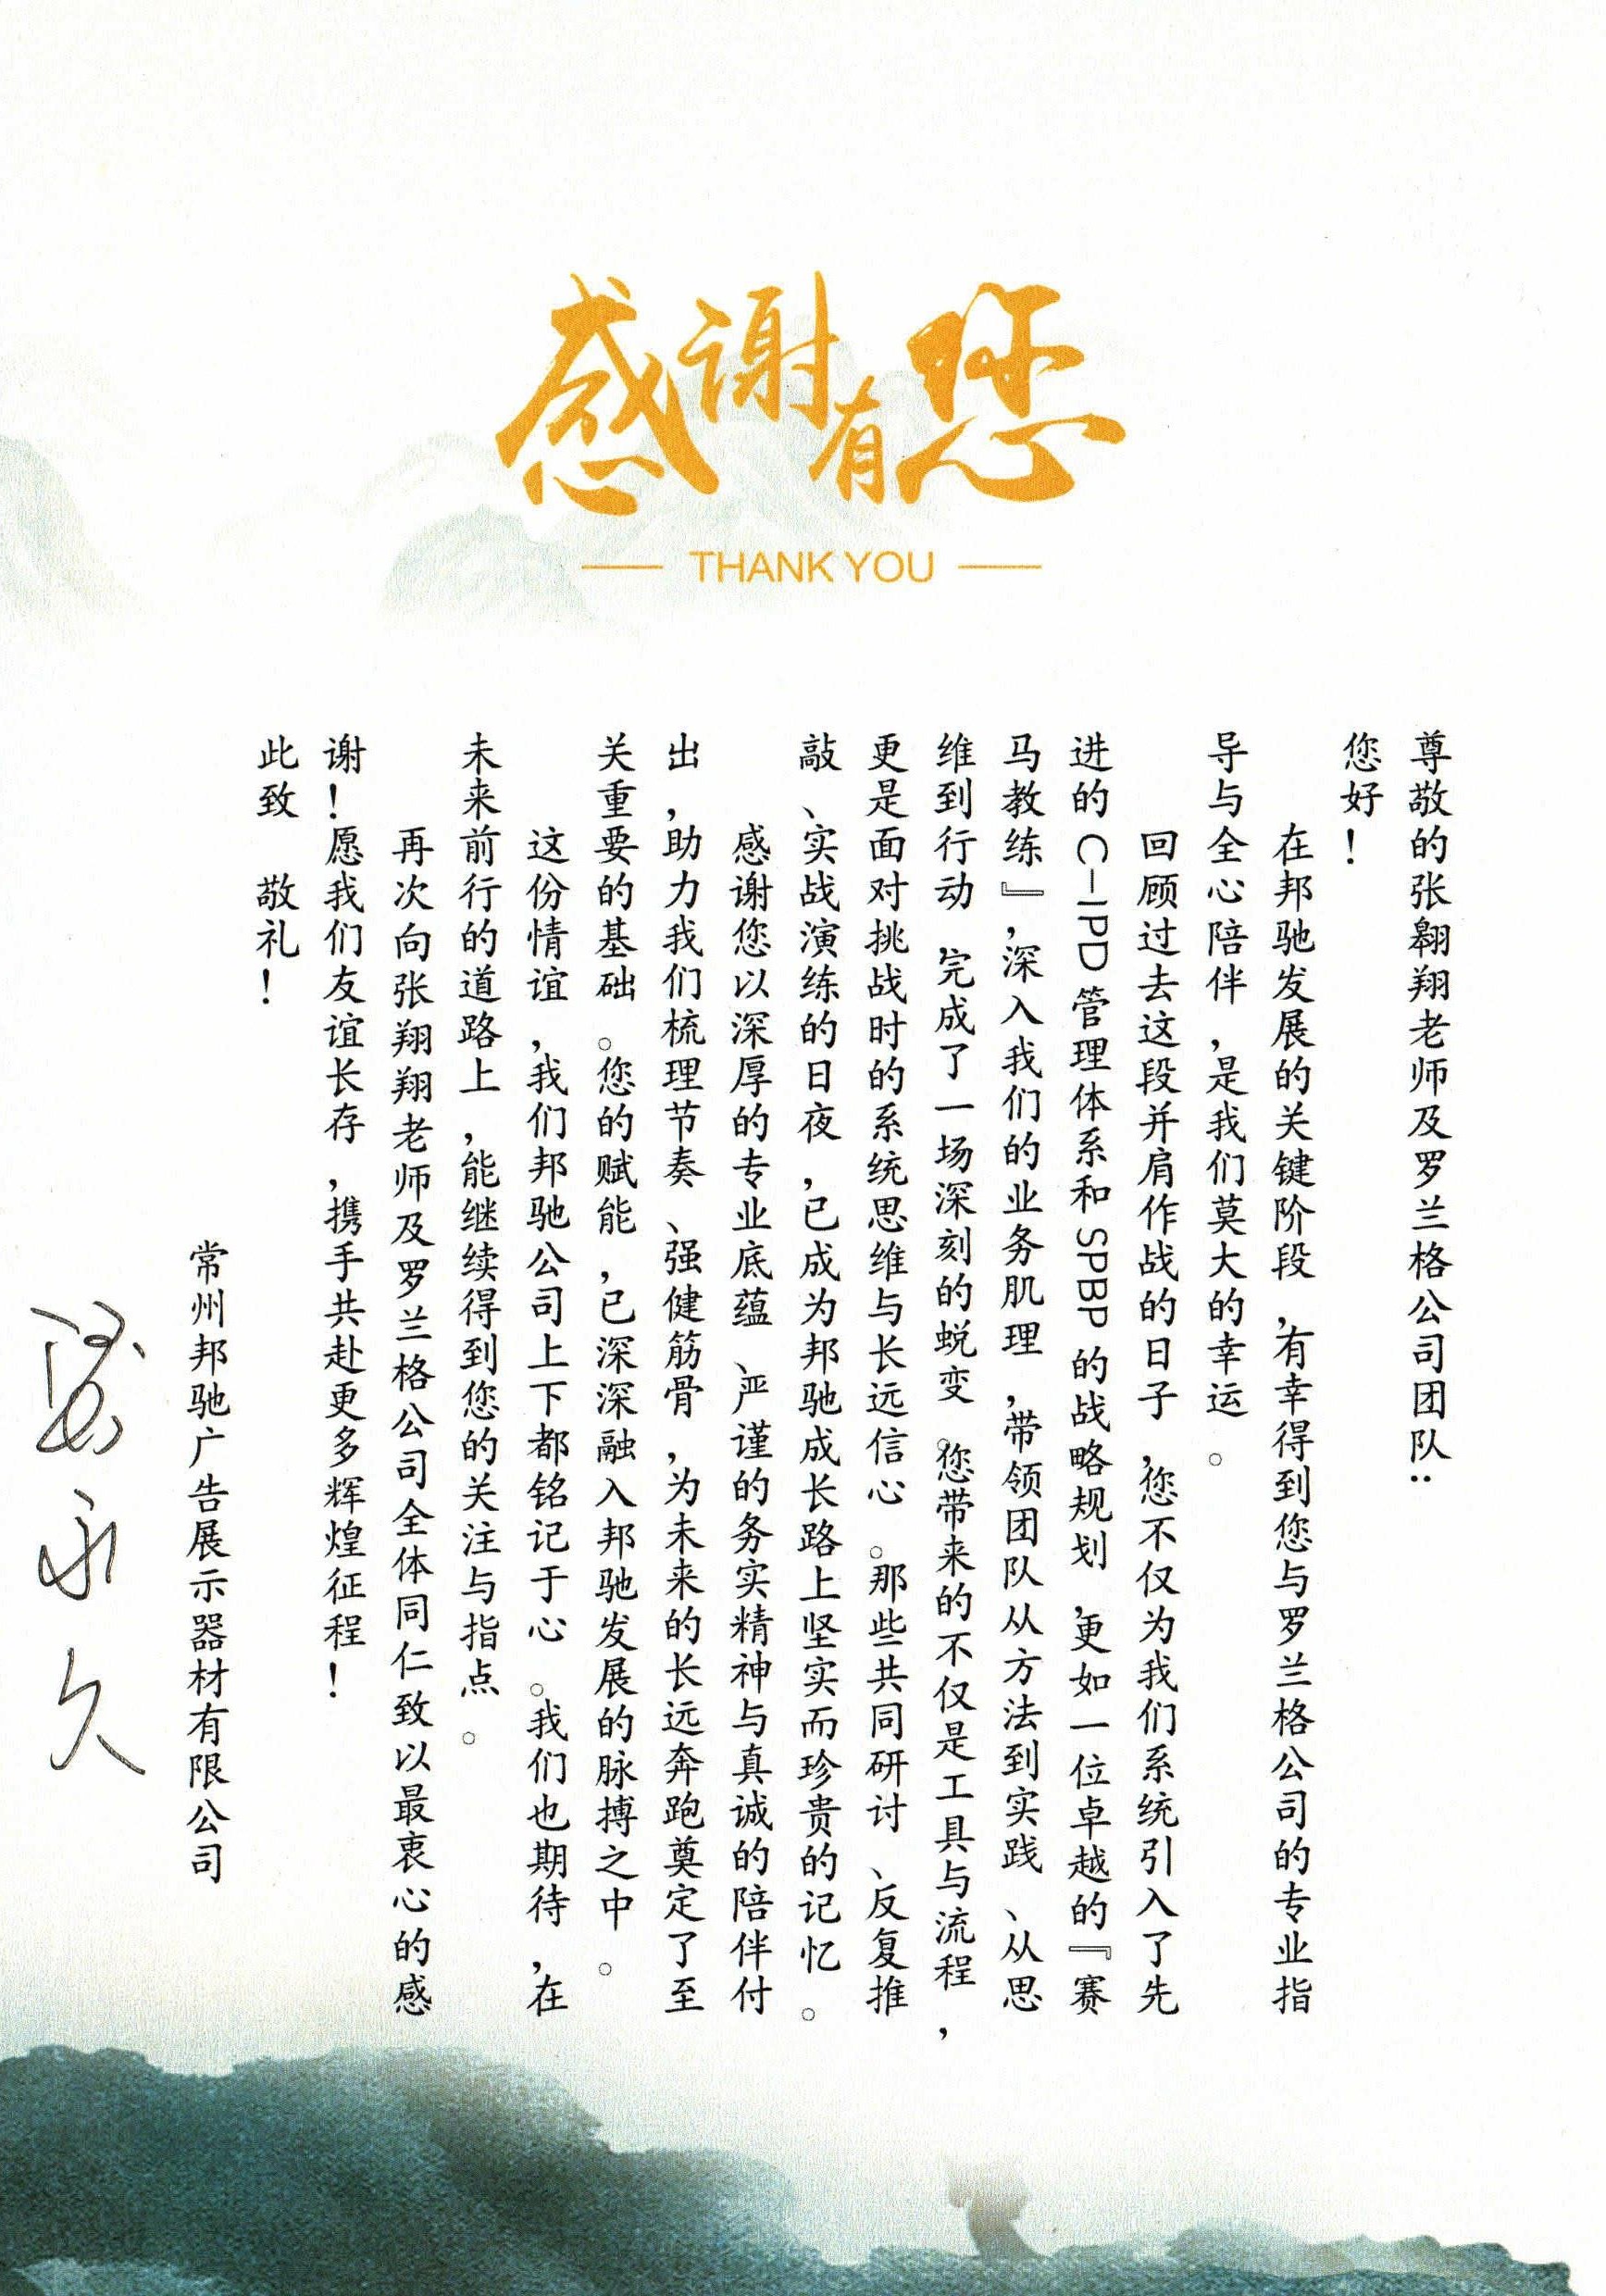 感谢有您
THANK YOU
尊敬的张翱翔老师及罗兰格公司团队：
您好！
在邦驰发展的关键阶段，有幸得到您与罗兰格公司的专业指
导与全心陪伴，是我们莫大的幸运。
回顾过去这段并肩作战的日子，您不仅为我们系统引入了先
进的C-IPD管理体系和SPBP的战略规划，更如一位卓越的『赛
马教练』，深入我们的业务肌理，带领团队从方法到实践、从思
维到行动，完成了一场深刻的蜕变。您带来的不仅是工具与流程，
更是面对挑战时的系统思维与长远信心。那些共同研讨、反复推
敲、实战演练的日夜，已成为邦驰成长路上坚实而珍贵的记忆。
感谢您以深厚的专业底蕴、严谨的务实精神与真诚的陪伴付
出，助力我们梳理节奏、强健筋骨，为未来的长远奔跑奠定了至
关重要的基础。您的赋能，已深深融入邦驰发展的脉搏之中。
这份情谊，我们邦驰公司上下都铭记于心。我们也期待，在
未来前行的道路上，能继续得到您的关注与指点。
再次向张翔翔老师及罗兰格公司全体同仁致以最衷心的感
谢！愿我们友谊长存，携手共赴更多辉煌征程！
此致 敬礼！
常州邦驰广告展示器材有限公司
永久